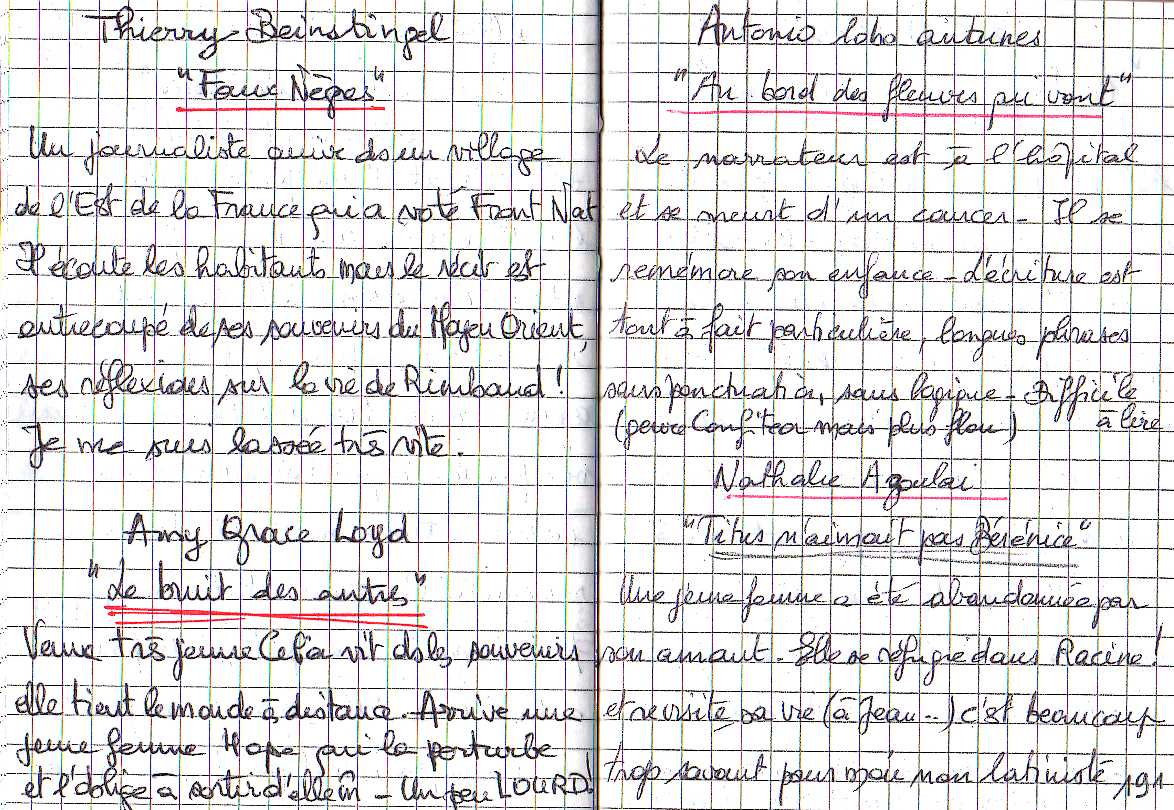 Thierry Beinstingel
"Faux Nègres"
Un journaliste arrive ds un village
de l'Est de la France qui a voté Front Nat
Il écoute les habitants mais le récit est
entrecoupé de ses souvenirs du Moyen Orient,
ses réflexions sur la vie de Rimbaud !
Je me suis lassée très vite.
Amy Grace Loyd
"Le bruit des autres"
Veuve très jeune Celia vit ds les souvenirs
elle tient le monde à distance. Arrive une
jeune femme Hope qui la perturbe
et l'oblige à sortir d'elle m̂ - Un peu LOURD !
Antonio Lobo antunes
"Au bord des fleuves qui vont"
Le narrateur est à l'hôpital
et se meurt d'un cancer - Il se
remémore son enfance - L'écriture est
tout à fait particulière, longues phrases
sans ponctuatiò, sans logique - Difficile
à lire
(genre Confiteor mais plus flou)
Nathalie Azoulai
"Titus n'aimait pas Bérénice"
Une jeune femme a été abandonnée par
son amant. Elle se réfugie dans Racine !
et revisite sa vie (à Jean..) c'est beaucoup
trop savant pour moi, non latiniste 191